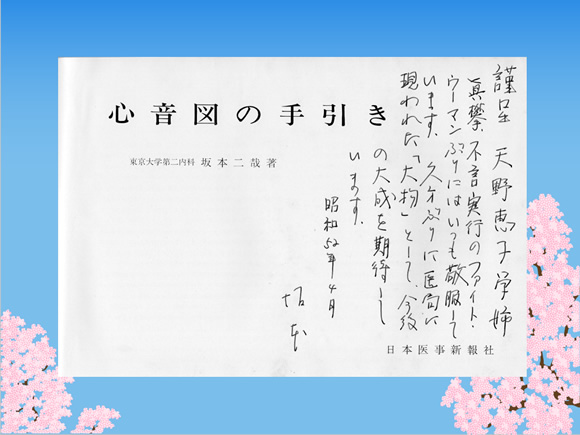 心音図の手引き
東京大学第二内科 坂本二哉著
謹呈 天野恵子学姉
真摯、不言実行のファイト・
ウーマンぶりにはいつも敬服して
います。久方ぶりに医局に
現われた「大物」として、今後
の大成を期待し
います。
昭和52年4月
坂本
日本医事新報社